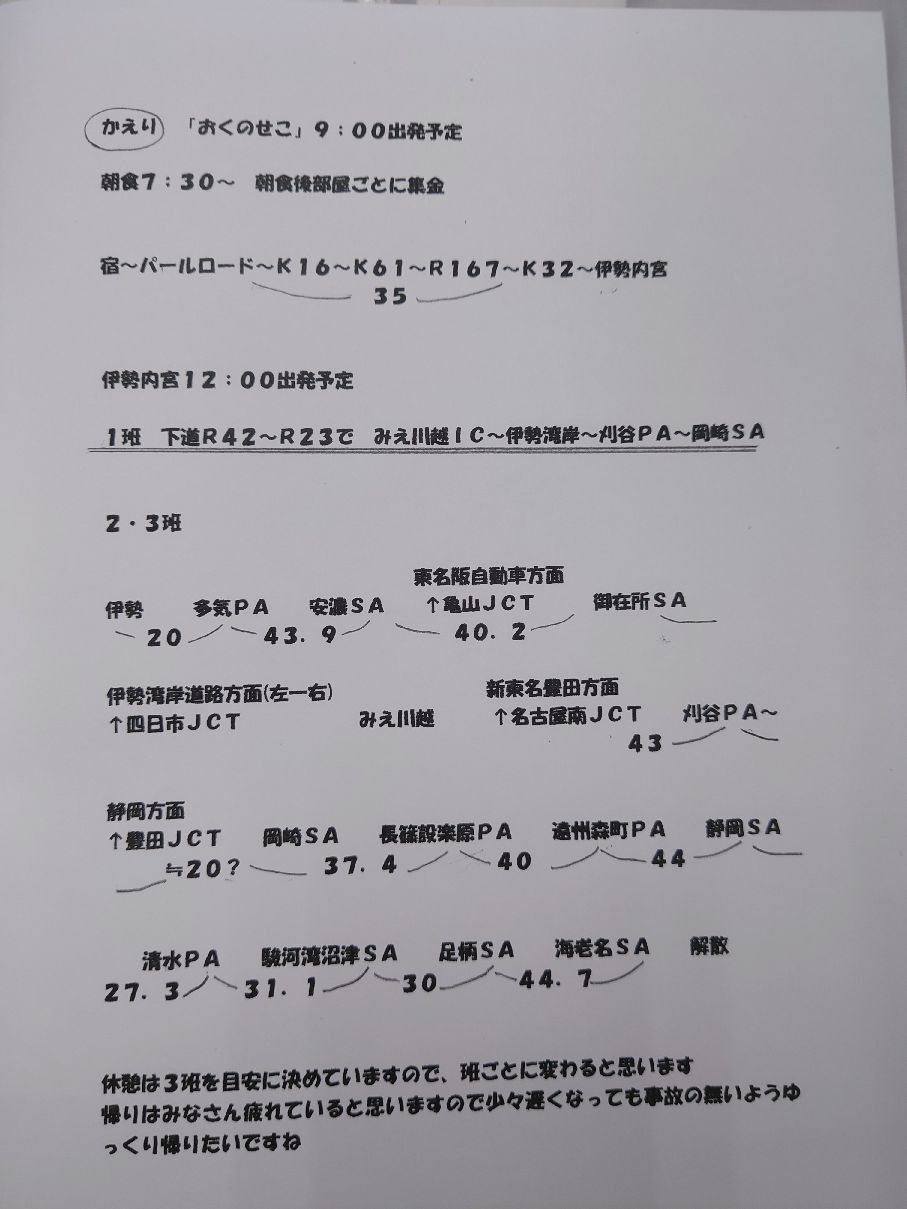 かえり 「おくのせこ」9：00出発予定
朝食7：30～ 朝食後部屋ごとに集金
宿～パールロード～K16～K61～R167～K32～伊勢内宮
35
伊勢内宮12：00出発予定
1班 下道R42～R23で みえ川越IC～伊勢湾岸～刈谷PA～岡崎SA
2・3班
東名阪自動車方面
伊勢 多気PA 安濃SA ↑亀山JCT 御在所SA
20 43．9 40．2
伊勢湾岸道路方面(左一右) 新東名豊田方面
↑四日市JCT みえ川越 ↑名古屋南JCT 刈谷PA～
43
静岡方面
↑豊田JCT 岡崎SA 長篠設楽原PA 遠州森町PA 静岡SA
≒20？ 37．4 40 44
清水PA 駿河湾沼津SA 足柄SA 海老名SA 解散
27．3 31．1 30 44．7
休憩は3班を目安に決めていますので、班ごとに変わると思います
帰りはみなさん疲れていると思いますので少々遅くなっても事故の無いようゆ
っくり帰りたいですね